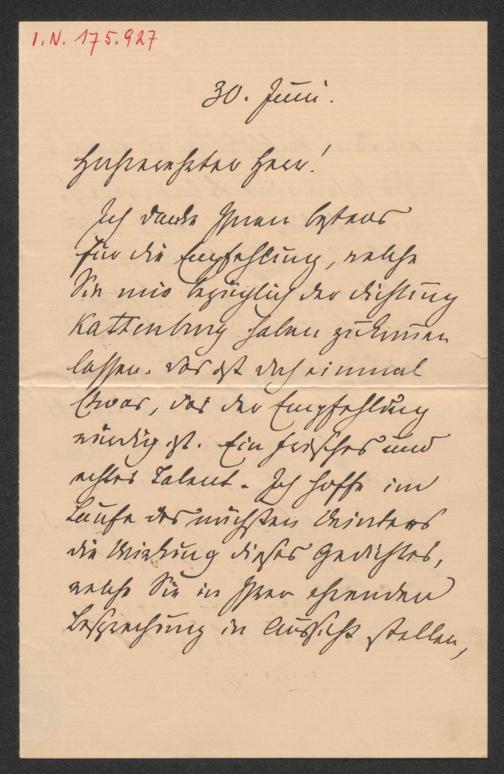 I.N. 175.927
30. Juni.
Hochverehrter Herr!
Ich danke Ihnen bestens
für die Empfehlung, welche
Sie mir bezüglich der Dichtung
Kattenburg haben zukommen
lassen. Das ist doch einmal
Etwas, das der Empfehlung
würdig ist. Ein frisches und
echtes Talent. Ich hoffe im
Laufe des nächsten Winters
die Wirkung dieses Gedichtes,
welche Sie in Ihrer ehrenden
Besprechung in Aussicht stellen,